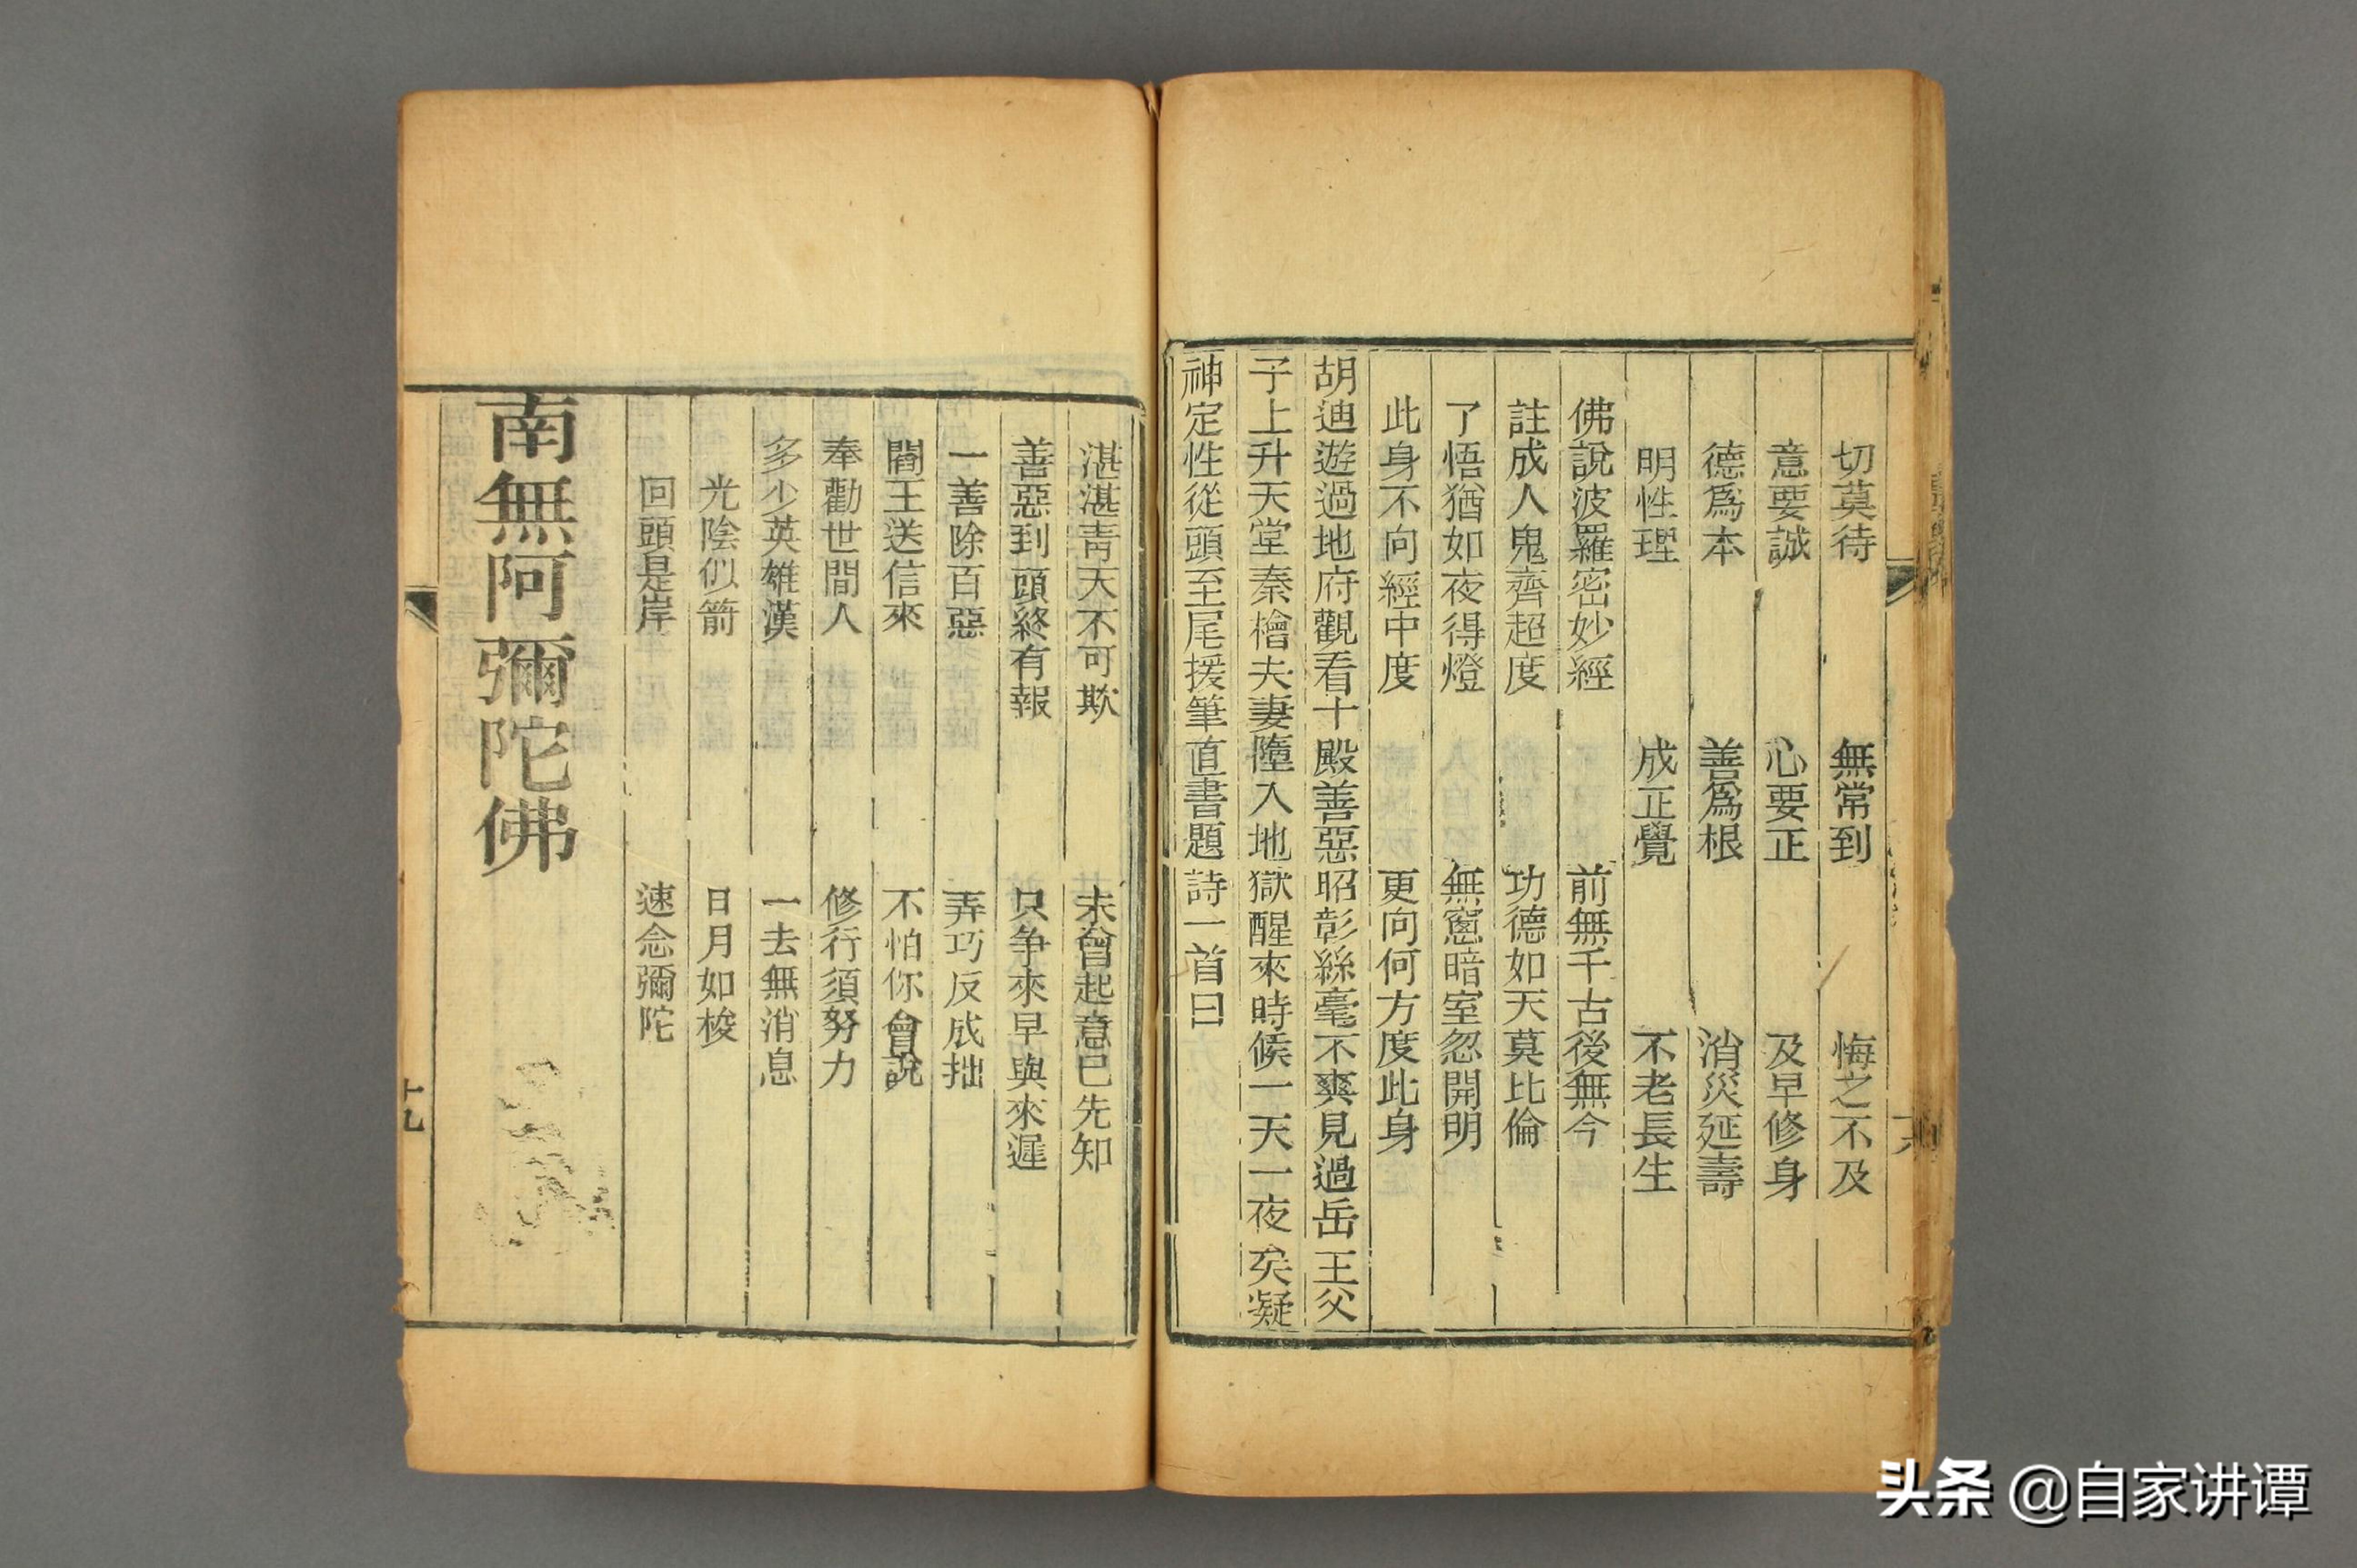 切莫待 無常到 悔之不及
意要誠 心要正 及早修身
德爲本 善爲根 消災延壽
明性理 成正覺 不老長生
佛說波羅密妙經 前無千古後無今
註成人鬼齊超度 功德如天莫比倫
了悟猶如夜得燈 無窻暗室忽開明
此身不向經中度 更向何方度此身
胡迪遊過地府觀看十殿善惡昭彰絲毫不爽見過岳王父
子上升天堂秦檜夫妻墮入地獄醒來時候一天一夜矣凝
神定性從頭至尾援筆直書題詩一首曰
湛湛青天不可欺 未曾起意已先知
善惡到頭終有報 只争來早與來遲
一善除百惡 弄巧反成拙
閻王送信來 不怕你會說
奉勸世間人 修行須努力
多少英雄漢 一去無消息
光陰似箭 日月如梭
回頭是岸 速念彌陀
南無阿彌陀佛
十九
头条 @自家讲谭